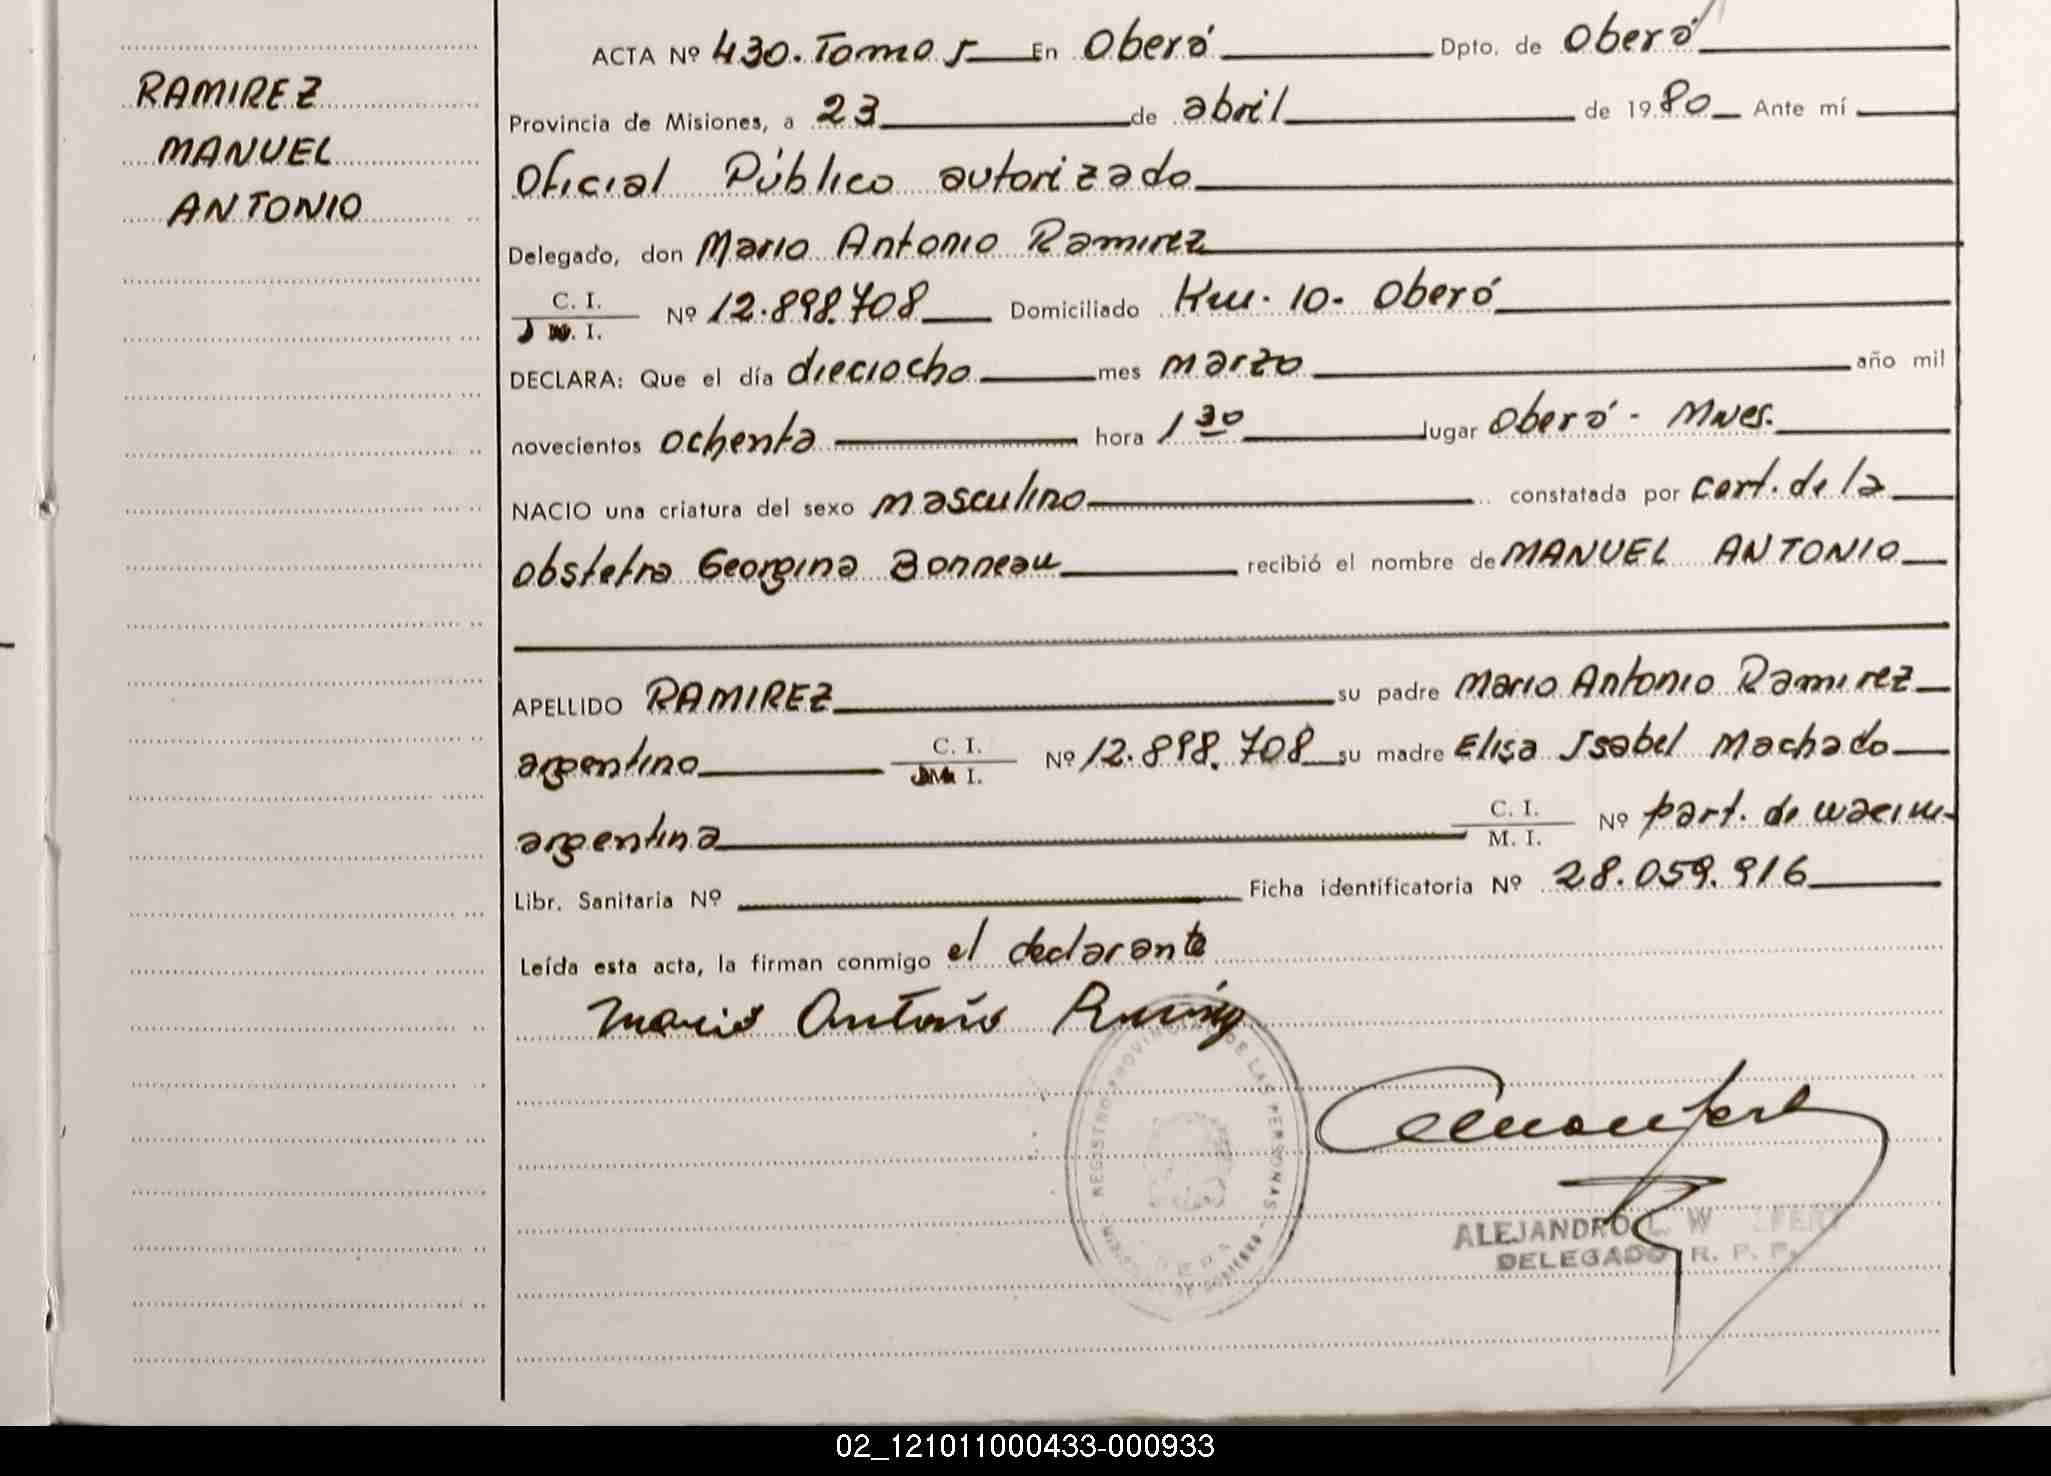 RAMIREZ
MANUEL
ANTONIO
ACTA Nº 430. Tomo 5 En Oberá Dpto. de Oberá
Provincia de Misiones, a 23 de abril de 1980 Ante mí
Oficial Público autorizado
Delegado, don Mario Antonio Ramirez
C. I.
M. I. Nº 12.898.708 Domiciliado Km. 10. Oberá
DECLARA: Que el día dieciocho mes marzo año mil
novecientos ochenta hora 1 30 lugar Oberá - Mnes.
NACIO una criatura del sexo masculino constatada por cert. de la
obstetra Georgina Bonneau recibió el nombre de MANUEL ANTONIO
APELLIDO RAMIREZ su padre Mario Antonio Ramirez
argentino C. I. M. I. Nº 12.898.708 su madre Elisa Isabel Machado
argentina C. I. M. I. Nº part. de nacim.
Libr. Sanitaria Nº Ficha identificatoria Nº 28.059.916
Leída esta acta, la firman conmigo el declarante
Mario Antonio Ramirez
REGISTRO PROVINCIAL DE LAS PERSONAS
DE GOBIERNO
ALEJANDRO L. W
DELEGADO R. P. P.
02_121011000433-000933